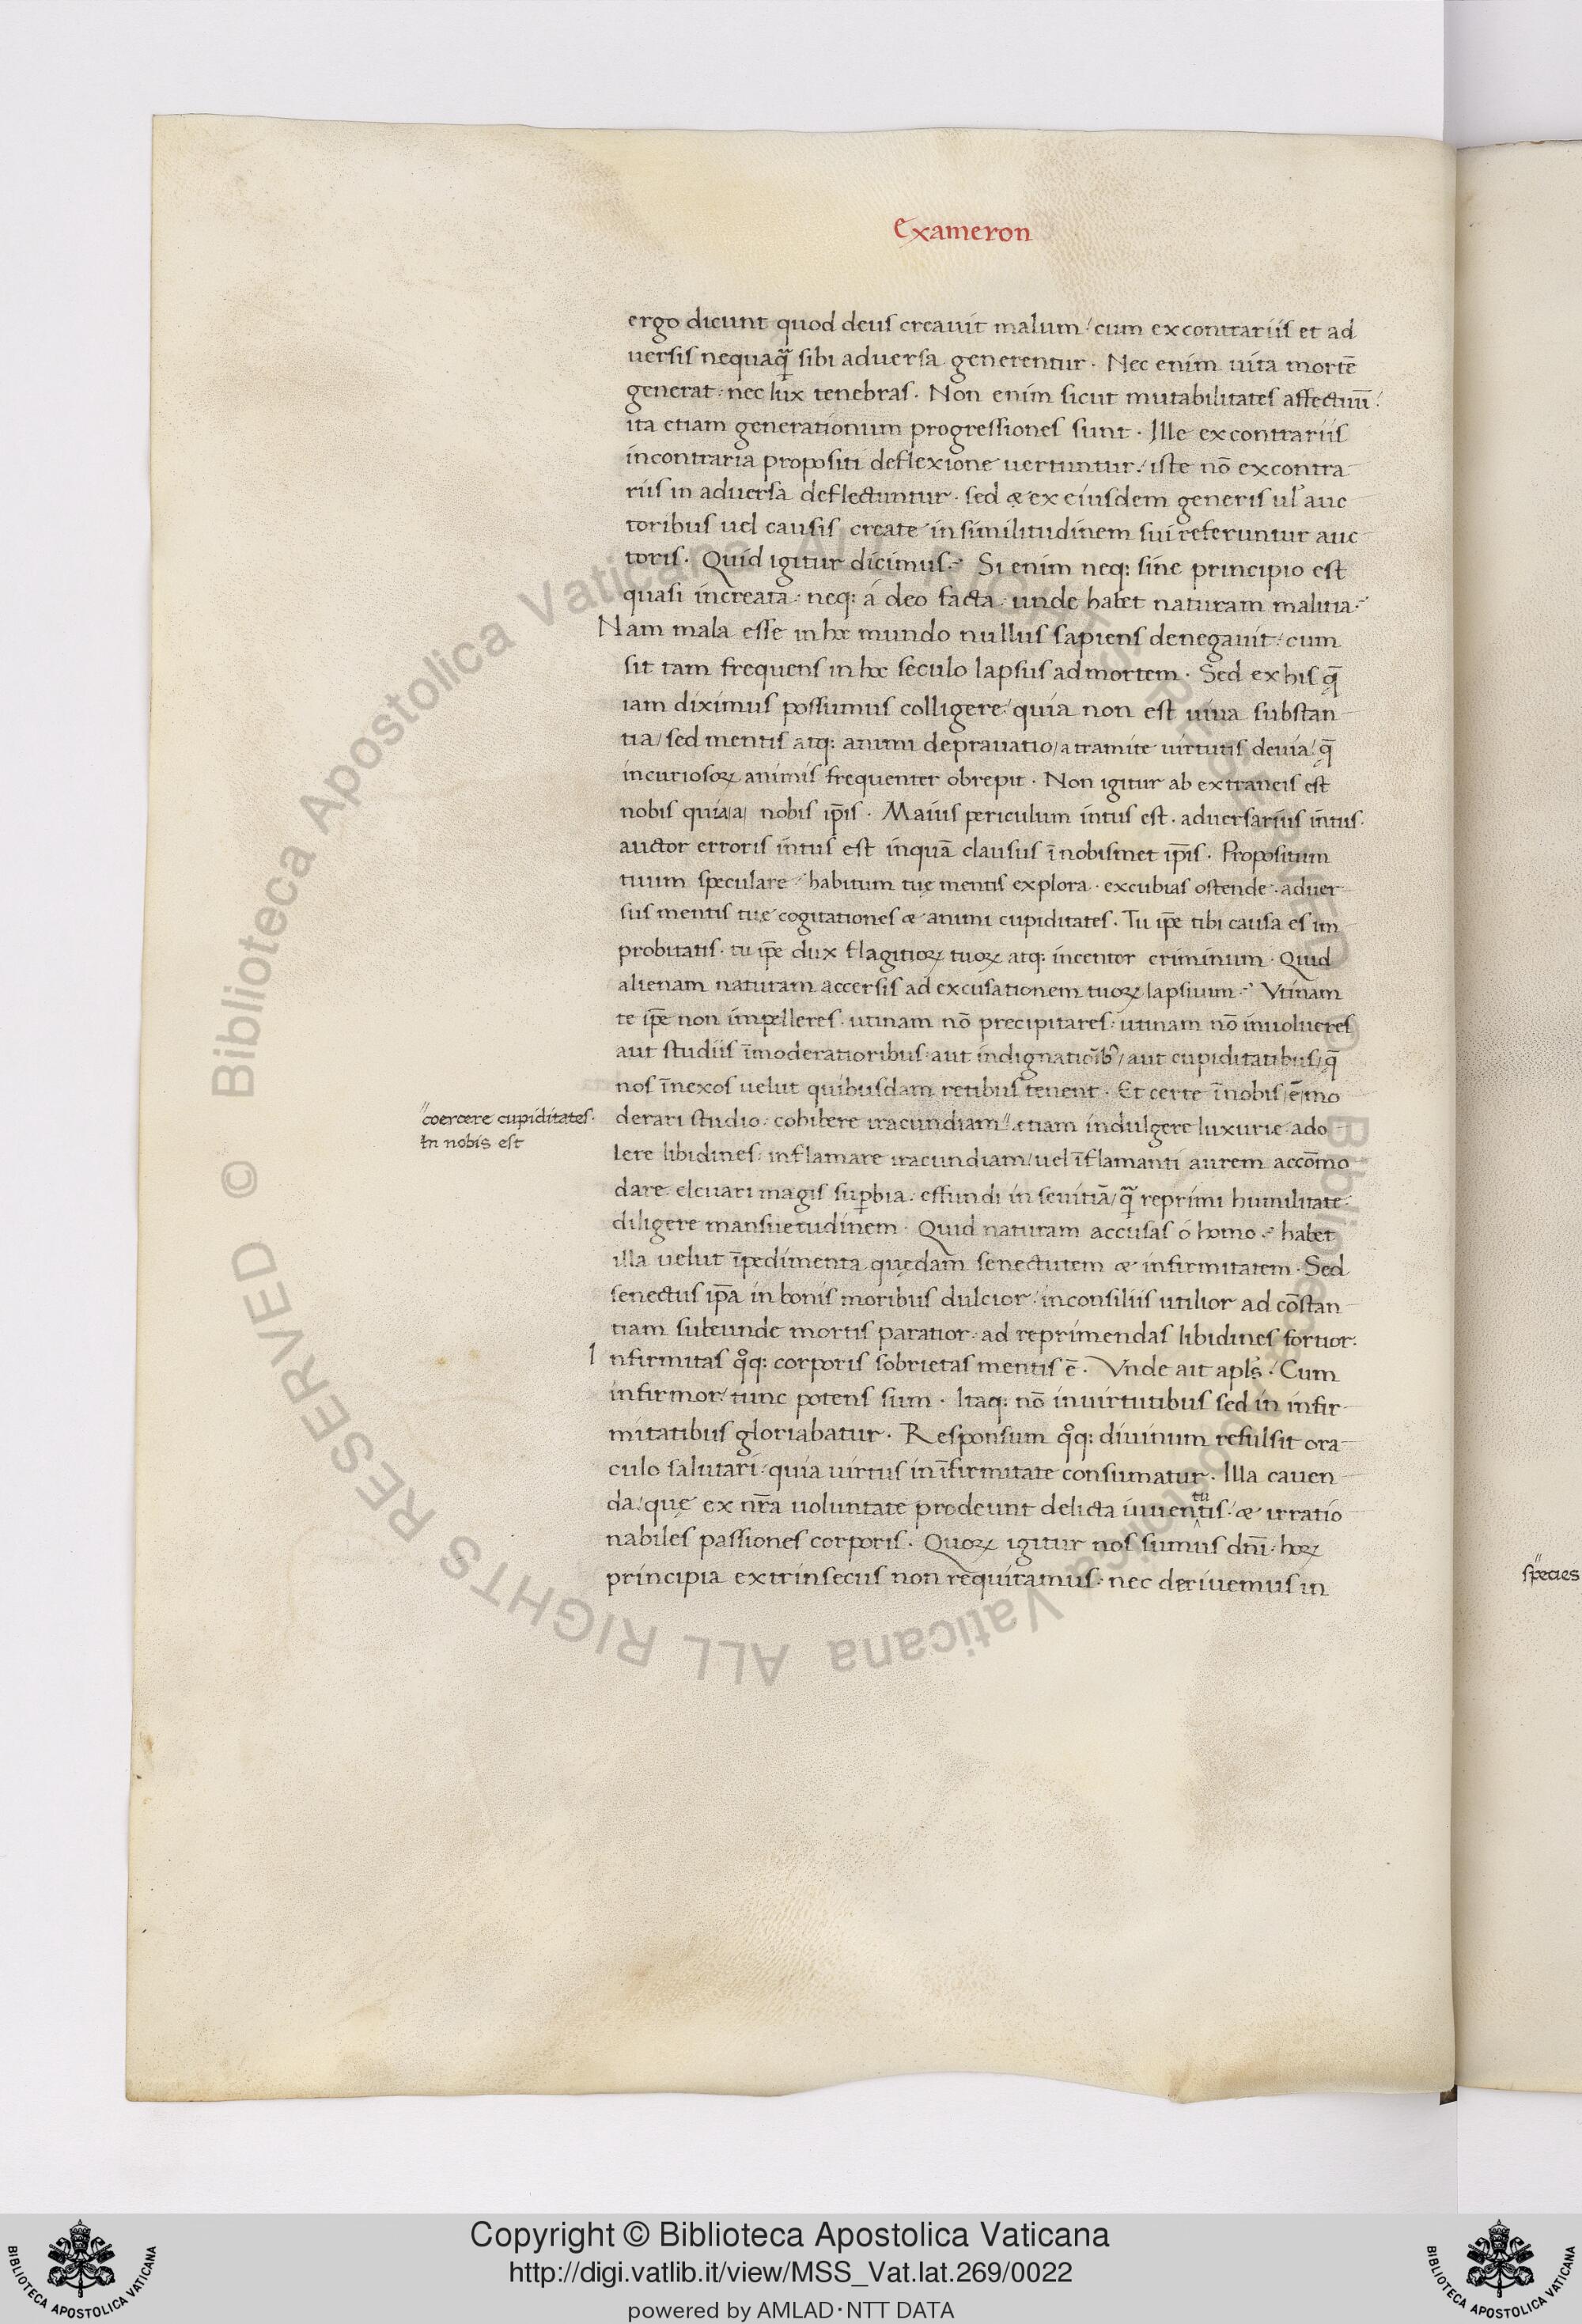 Exameron
ergo dicunt quod deus creauit malum / cum ex contrariis et ad
uersis nequaq̃ sibi aduersa generentur · Nec enim uita mortē
generat · nec lux tenebras · Non enim sicut mutabilitates affectuū /
ita etiam generationum progressiones sunt · Ille ex contrariis
in contraria propositi deflexione uertuntur / iste nō ex contra
riis in aduersa deflectuntur · sed & ex eiusdem generis ul̓ auc
toribus uel causis create in similitudinem sui referuntur auc
toris · Quid igitur dicimus? Si enim neq: sine principio est
quasi increata · neq: á deo facta · unde habet naturam malitia?
Nam mala esse in hoc mundo nullus sapiens denegauit / cum
sit tam frequens in hoc seculo lapsus ad mortem · Sed ex his q̄
iam diximus possumus colligere / quia non est uiua substan
tia / sed mentis atq: animi deprauatio / a tramite uirtutis deuia / q̄
incuriosoꝝ animis frequenter obrepit · Non igitur ab extraneis est
nobis quia /a/ nobis ip̄is · Maius periculum intus est · aduersarius intus ·
auctor erroris intus est inquā clausus ī nobismet ip̄is · Propositum
tuum speculare / habitum tuę mentis explora · excubias ostende · aduer
sus mentis tuę cogitationes & animi cupiditates · Tu ip̄e tibi causa es im
probitatis · tu ip̄e dux flagitioꝝ tuoꝝ atq: incentor criminum · Quid
alienam naturam accersis ad excusationem tuoꝝ lapsuum? Vtinam
te ip̄e non impelleres · utinam nō precipitares · utinam nō inuolueres
aut studiis īmoderatioribus · aut indignatiōib; / aut cupiditatibus / q̄
nos īnexos uelut quibusdam retibus tenent · Et certe ī nobis / ē / mo
derari studio · cohibere iracundiam " etiam indulgere luxurie · ado
" coercere cupiditates ·
In nobis est
lere libidines · inflamare iracundiam / uel īflamanti aurem accōmo
dare · eleuari magis suꝑbia · effundi in seuitiā / q̃ reprimi humilitate ·
diligere mansuetudinem · Quid naturam accusas ó homo? habet
illa uelut īpedimenta quędam senectutem & infirmitatem · Sed
senectus ip̄a in bonis moribus dulcior / in consiliis utilior ad cōstan
tiam subeunde mortis paratior · ad reprimendas libidines fortior ·
Infirmitas q̊q: corporis sobrietas mentis ē · Vnde ait apl̄s / Cum
infirmor / tunc potens sum · Itaq: nō in uirtutibus sed in infir
mitatibus gloriabatur · Responsum q̊q: diuinum refulsit ora
culo salutari · quia uirtus in īfirmitate consumatur · Illa cauen
da / quę ex nr̄a uoluntate prodeunt delicta iuuentutis · & irratio
nabiles passiones corporis · Quoꝝ igitur nos sumus dn̄i · hoꝝ
principia extrinsecus non requiramus · nec deriuemus in
" species
© Biblioteca Apostolica Vaticana ALL RIGHTS RESERVED
Copyright © Biblioteca Apostolica Vaticana
http://digi.vatlib.it/view/MSS_Vat.lat.269/0022
powered by AMLAD·NTT DATA
BIBLIOTECA APOSTOLICA VATICANA
BIBLIOTECA APOSTOLICA VATICANA